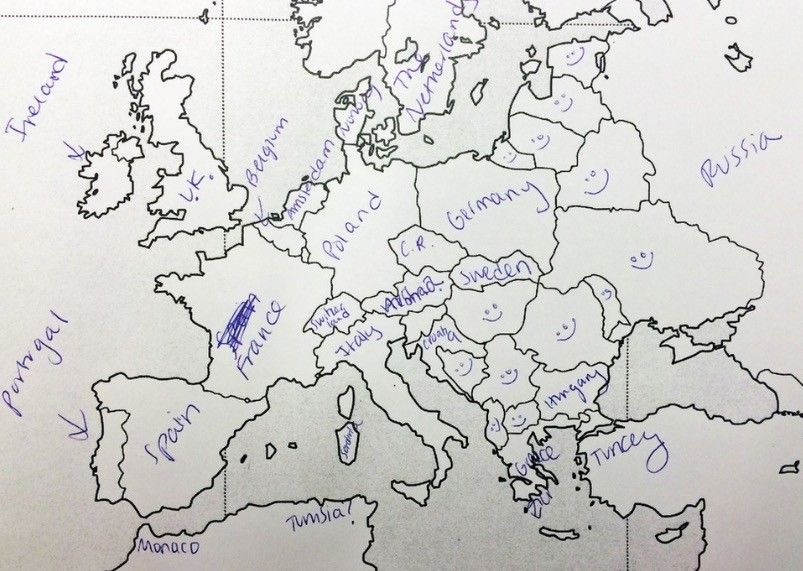 Ireland
The
Netherlands
Norway
Belgium
Amsterdam
Russia
U.K.
Poland
Germany
C.R.
Sweden
Switzer
land
France
Italy
Croatia
Hungary
Portugal
Spain
Sardinia
Greece
Turkey
Tunisia?
Monaco